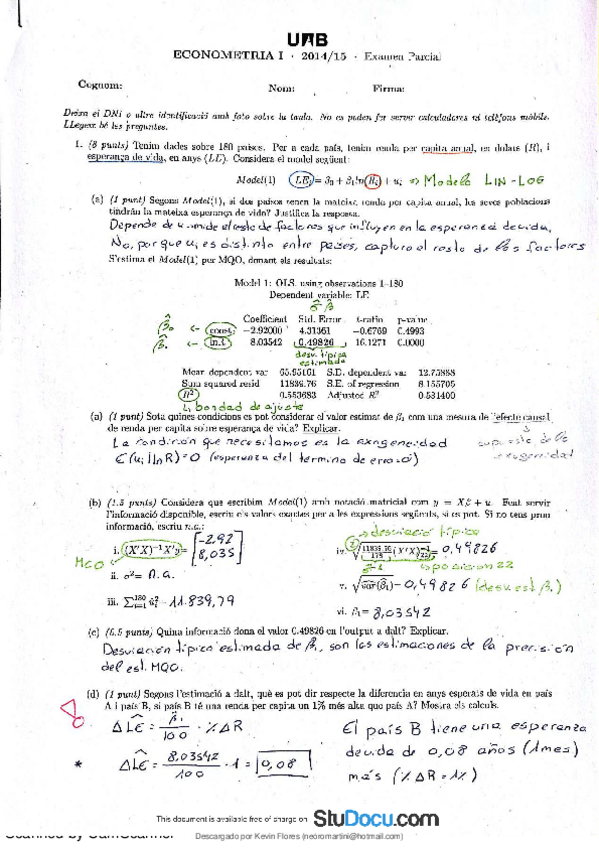 UAB
ECONOMETRIA I · 2014/15 · Examen Parcial
Cognom: Nom: Firma:
Deixa el DNI o altre identificació amb foto sobre la taula. No es poden fer servir calculadores ni telèfons mòbils.
LLegeix bé les preguntes.
1. (8 punts) Tenim dades sobre 180 països. Per a cada país, tenim renda per capita anual, en dolars (R), i
esperança de vida, en anys (LE). Considera el model següent:
Model(1) LEi = β0 + β1ln(Ri) + ui ⇒ Modelo LIN-LOG
(a) (1 punt) Segons Model(1), si dos països tenen la mateixa renda per capita anual, les seves poblacions
tindrán la mateixa esperança de vida? Justifica la resposta.
Depende de u mide el resto de factores que influyen en la esperanza de vida,
No, porque ui es distinto entre países, captura el resto de los factores
S'estima el Model(1) per MQO, donant els resultats:
Model 1: OLS, using observations 1–180
Dependent variable: LE
σ̂ β̂
Coefficient Std. Error t-ratio p-value
β̂0 ← const −2.92000 4.31361 −0.6769 0.4993
β̂1 ← ln.R 8.03542 0.49826 16.1271 0.0000
desv. típica
estimada
Mean dependent var 65.95161 S.D. dependent var 12.75888
Sum squared resid 11839.76 S.E. of regression 8.155705
R² 0.593683 Adjusted R² 0.591400
↳ bondad de ajuste
(a) (1 punt) Sota quines condicions es pot considerar el valor estimat de β1 com una mesura de l'efecte causal
de renda per capita sobre esperança de vida? Explicar.
La condición que necesitamos es la exogeneidad
E(ui|lnR)=0 (esperanza del termino de error=0)
supuesto de la
exogeneidad
(b) (1.5 punts) Considera que escribim Model(1) amb notació matricial com y = Xβ + u. Fent servir
l'informació disponible, escriu els valors exactes per a les expressions següents, si es pot. Si no tens prou
informació, escriu n.a.:
desviació típica
i. (X'X)⁻¹X'y = [-2,92 8,035]
MCO
iv. = 0,49826
posicion 22
ii. σ² = n.a.
v. √var(β̂1) = 0,49826 (desv est β1)
iii. ∑¹⁸⁰ᵢ₌₁ û²ᵢ = 11.839,79
vi. β̂1 = 8,03542
(c) (0.5 punts) Quina informació dona el valor 0.49826 en l'output a dalt? Explicar.
Desviación típica estimada de β̂1, son las estimaciones de la precisión
del est. MQO.
(d) (1 punt) Segons l'estimació a dalt, què es pot dir respecte la diferencia en anys esperats de vida en país
A i país B, si país B té una renda per capita un 1% més alta que país A? Mostra els càlculs.
ΔLE = β̂1/100 · %ΔR
* ΔLE = 8,03542/100 · 1 = 0,08
El país B tiene una esperanza
de vida de 0,08 años (1 mes)
más (%ΔR = 1%)
This document is available free of charge on StuDocu.com
Scanned by CamScanner
Descargado por Kevin Flores (neoromartini@hotmail.com)